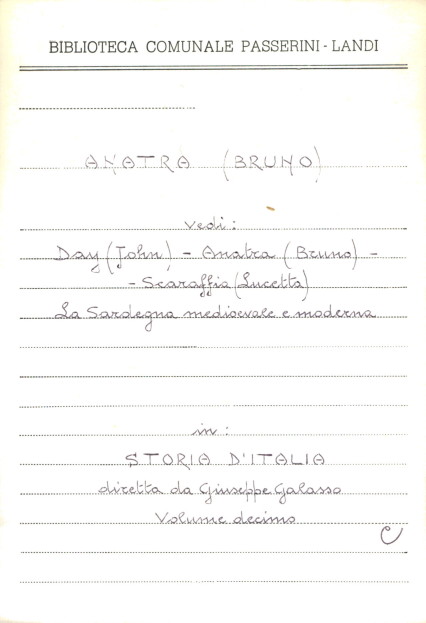 BIBLIOTECA COMUNALE PASSERINI - LANDI
ANATRA (BRUNO)
vedi:
Day (John) - Anatra (Bruno) -
- Scaraffia (Lucetta)
La Sardegna medioevale e moderna
in:
STORIA D'ITALIA
diretta da Giuseppe Galasso
Volume decimo
C